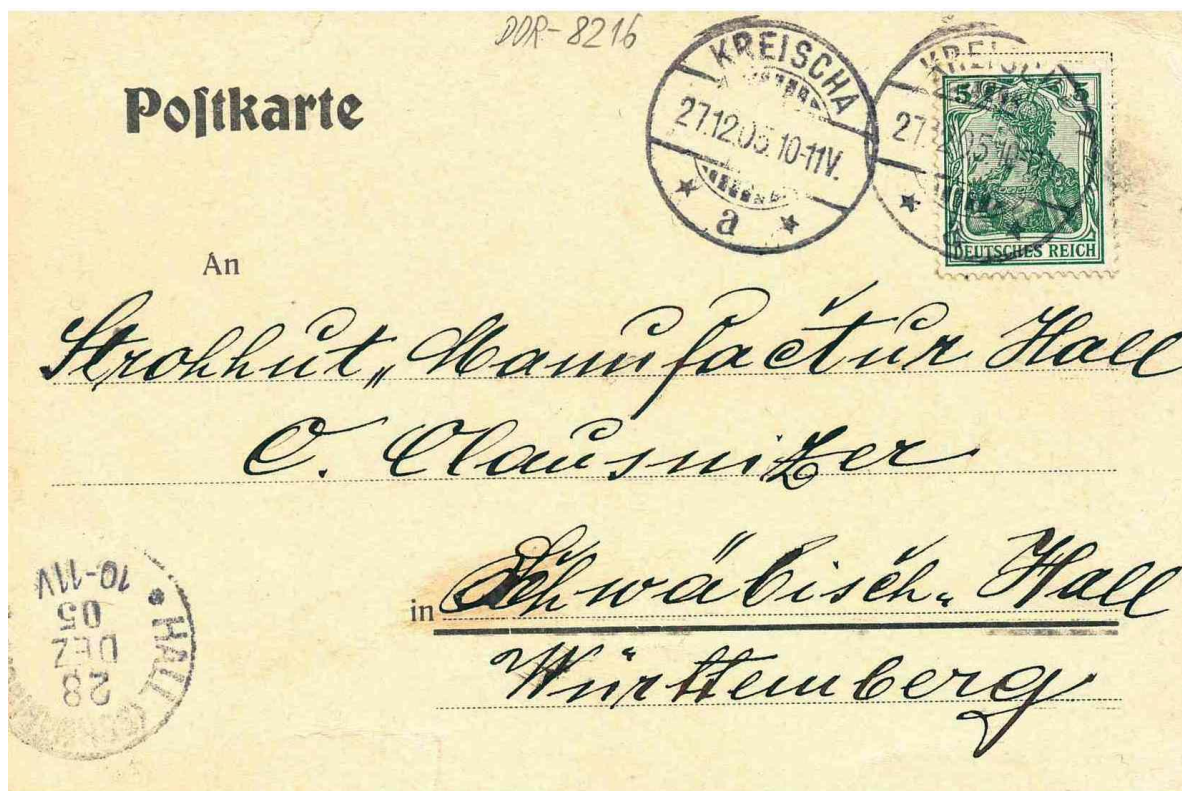 DDR-8216
Postkarte
KREISCHA
27.12.05.10-11V.
a
KREISCHA
27.12.05.10-
5 5
DEUTSCHES REICH
An
Strohhut„Manufactur Hall
C. Clausnitzer
in Schwäbisch„Hall
Württemberg
HALL
28
DEZ
05
10-11V